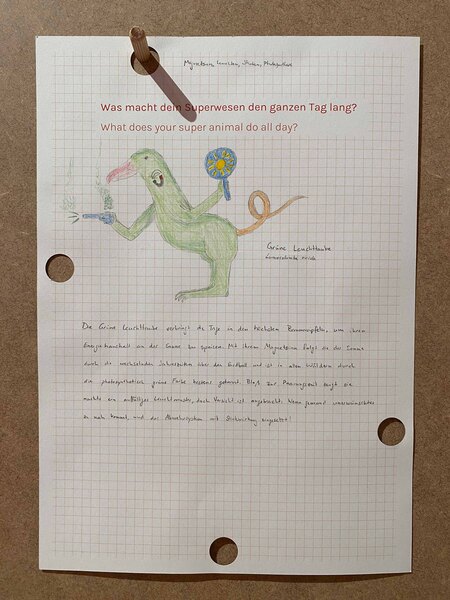 Magnetsinn, Leuchten, Stinken, Photosynthese
Was macht dein Superwesen den ganzen Tag lang?
What does your super animal do all day?
Grüne Leuchttaube
Die Grüne Leuchttaube verbringt die Tage in den höchsten Baumwipfeln, um ihren
Energiehaushalt an der Sonne zu speisen. Mit ihrem Magnetsinn folgt sie der Sonne
durch die wechselnden Jahreszeiten über den Erdball und ist in allen Wäldern durch
die photosynthetisch grüne Farbe bestens getarnt. Bloß zur Paarungszeit zeigt sie
nachts ein auffälliges Leuchtmuster, doch Vorsicht ist angebracht: Wenn jemand unerwünschtes
zu nah kommt, wird das Abwehrsystem mit Stinkwirkung eingesetzt!